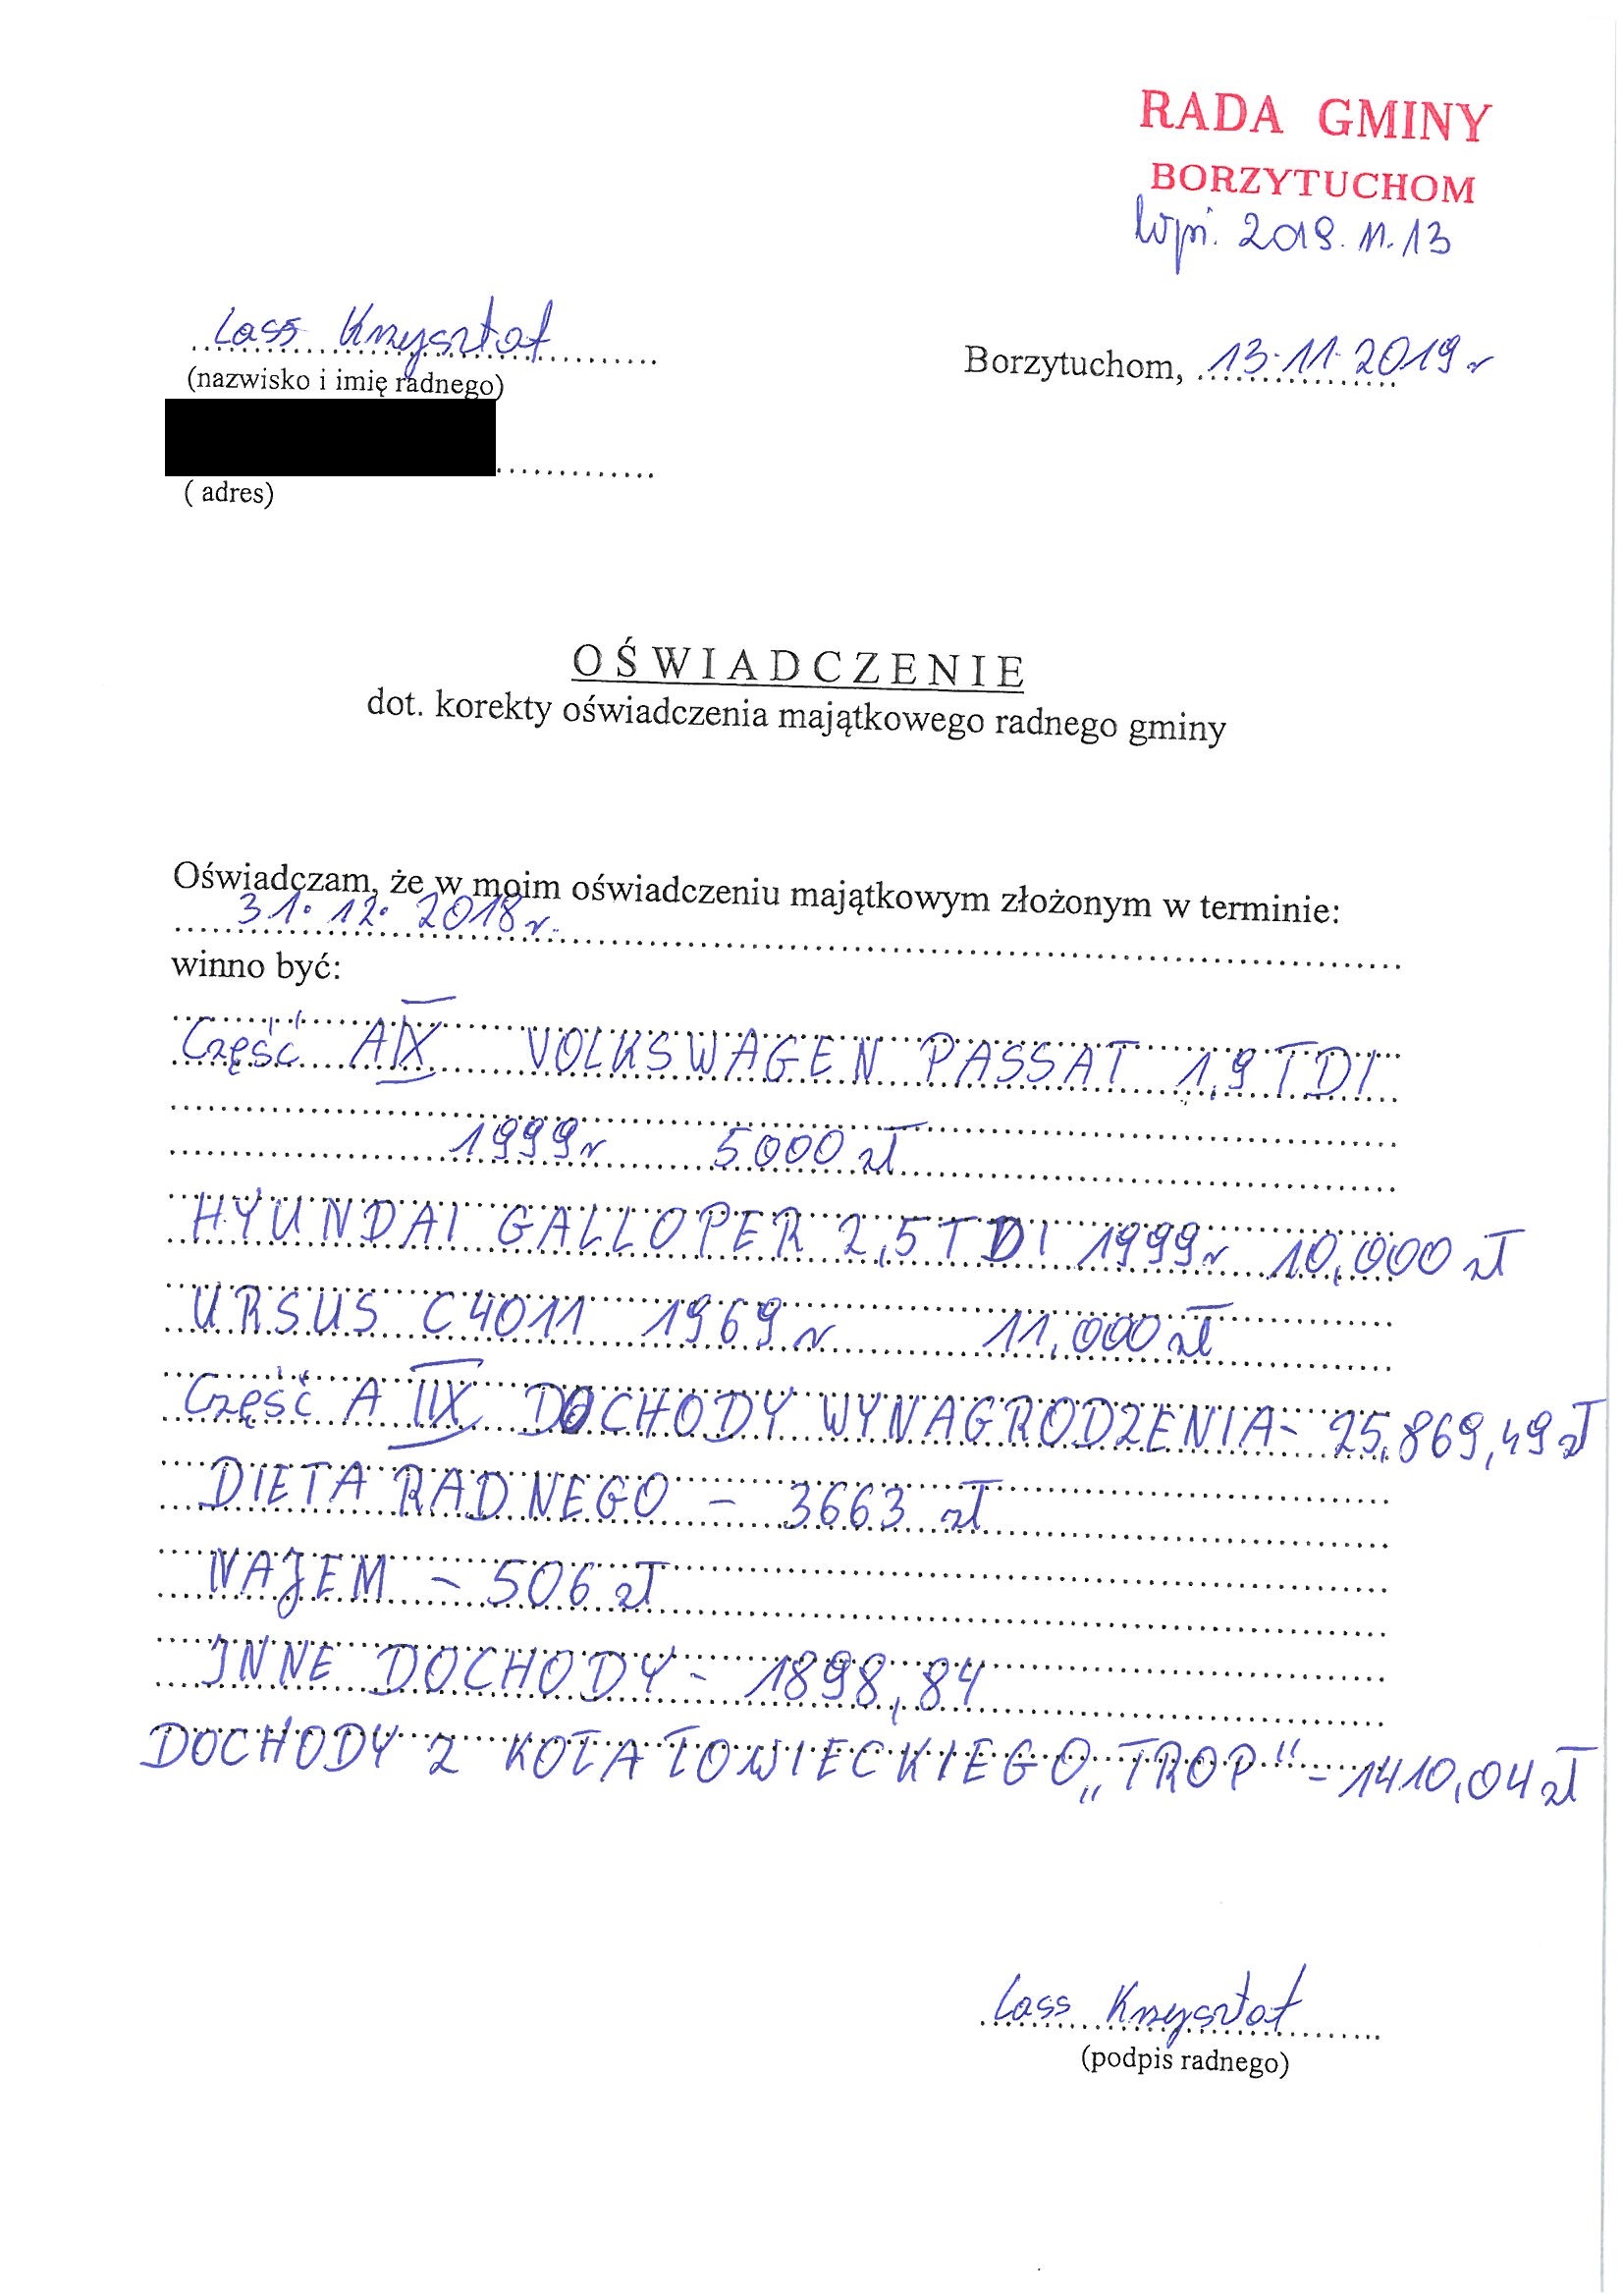 RADA GMINY
BORZYTUCHOM
wpł. 2019.11.13
Lass Krzysztof
(nazwisko i imię radnego)
Borzytuchom, 13.11.2019 r
( adres)
OŚWIADCZENIE
dot. korekty oświadczenia majątkowego radnego gminy
Oświadczam, że w moim oświadczeniu majątkowym złożonym w terminie:
31.12.2018 r.
winno być:
Część A IX VOLKSWAGEN PASSAT 1,9 TDI
1999r 5000 zł
HYUNDAI GALLOPER 2,5 TDI 1999r 10,000 zł
URSUS C4011 1969 r 11,000 zł
Część A IIX DOCHODY WYNAGRODZENIA - 25,869,49 zł
DIETA RADNEGO - 3663 zł
NAJEM - 506 zł
INNE DOCHODY - 1898,84
DOCHODY Z KOŁA ŁOWIECKIEGO „TROP" - 1410,04 zł
Lass Krzysztof
(podpis radnego)